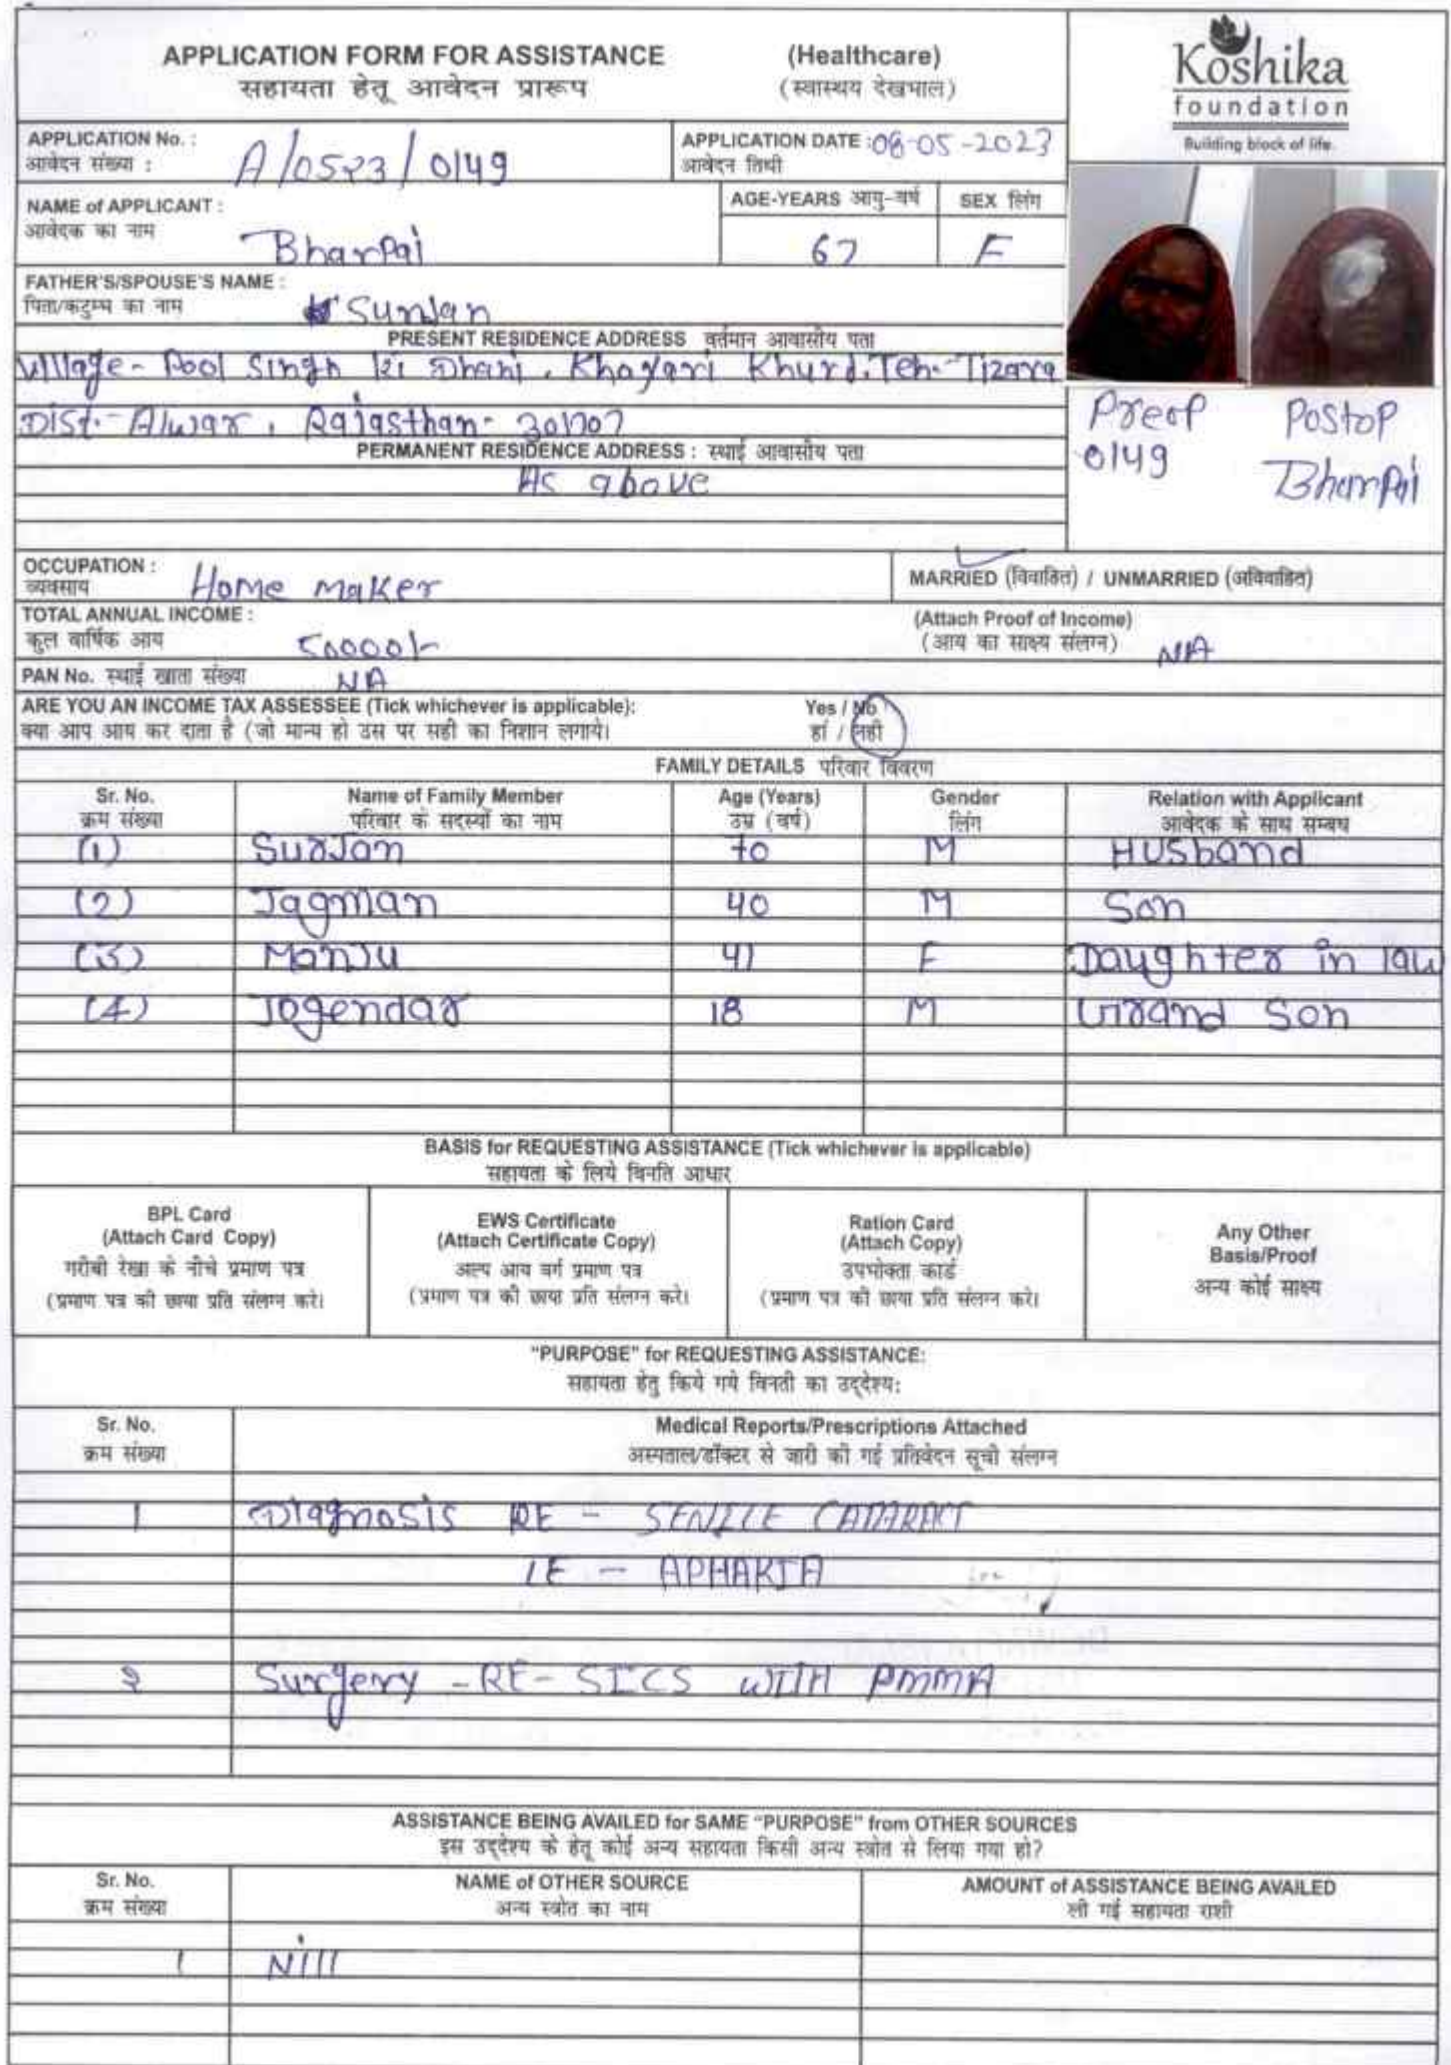 APPLICATION FORM FOR ASSISTANCE (Healthcare)
सहायता हेतू आवेदन प्रारूप (स्वास्थय देखभाल)
Koshika
foundation
Building block of life.
APPLICATION No. :
आवेदन संख्या :
A/0523/0149
APPLICATION DATE : 08-05-2023
आवेदन तिथी
NAME of APPLICANT :
आवेदक का नाम
Bharpai
AGE-YEARS आयु-वर्ष
67
SEX लिंग
F
FATHER'S/SPOUSE'S NAME :
पिता/कटुम्ब का नाम
Surjan
PRESENT RESIDENCE ADDRESS वर्तमान आवासीय पता
Village- Pool Singh ki Dhani, Khayari Khurd. Teh- Tizara
Dist.- Alwar, Rajasthan- 301707
PERMANENT RESIDENCE ADDRESS : स्थाई आवासीय पता
As above
Preop Postop
0149 Bharpai
OCCUPATION :
व्यवसाय
Home maker
MARRIED (विवाहित) / UNMARRIED (अविवाहित)
TOTAL ANNUAL INCOME :
कुल वार्षिक आय
50000/-
(Attach Proof of Income)
(आय का साक्ष्य संलग्न) NA
PAN No. स्थाई खाता संख्या NA
ARE YOU AN INCOME TAX ASSESSEE (Tick whichever is applicable): Yes / No
क्या आप आय कर दाता है (जो मान्य हो उस पर सही का निशान लगाये। हां / नही
FAMILY DETAILS परिवार विवरण
Sr. No. Name of Family Member Age (Years) Gender Relation with Applicant
क्रम संख्या परिवार के सदस्यों का नाम उम्र (वर्ष) लिंग आवेदक के साथ सम्बध
(1) Surjan 70 M Husband
(2) Jagman 40 M Son
(3) Manju 41 F Daughter in law
(4) Jogendar 18 M Grand Son
BASIS for REQUESTING ASSISTANCE (Tick whichever is applicable)
सहायता के लिये विनति आधार
BPL Card
(Attach Card Copy)
गरीबी रेखा के नीचे प्रमाण पत्र
(प्रमाण पत्र की छाया प्रति संलग्न करे।
EWS Certificate
(Attach Certificate Copy)
अल्प आय वर्ग प्रमाण पत्र
(प्रमाण पत्र की छाया प्रति संलग्न करे।
Ration Card
(Attach Copy)
उपभोक्ता कार्ड
(प्रमाण पत्र की छाया प्रति संलग्न करे।
Any Other
Basis/Proof
अन्य कोई साक्ष्य
"PURPOSE" for REQUESTING ASSISTANCE:
सहायता हेतु किये गये विनती का उद्देश्य:
Sr. No. Medical Reports/Prescriptions Attached
क्रम संख्या अस्पताल/डॉक्टर से जारी की गई प्रतिवेदन सूची संलग्न
1 Diagnosis RE - SENILE CATARACT
LE - APHAKIA
2 Surgery - RE - SICS WITH PMMA
ASSISTANCE BEING AVAILED for SAME "PURPOSE" from OTHER SOURCES
इस उद्देश्य के हेतू कोई अन्य सहायता किसी अन्य स्त्रोत से लिया गया हो?
Sr. No. NAME of OTHER SOURCE AMOUNT of ASSISTANCE BEING AVAILED
क्रम संख्या अन्य स्त्रोत का नाम ली गई सहायता राशी
1 Nill